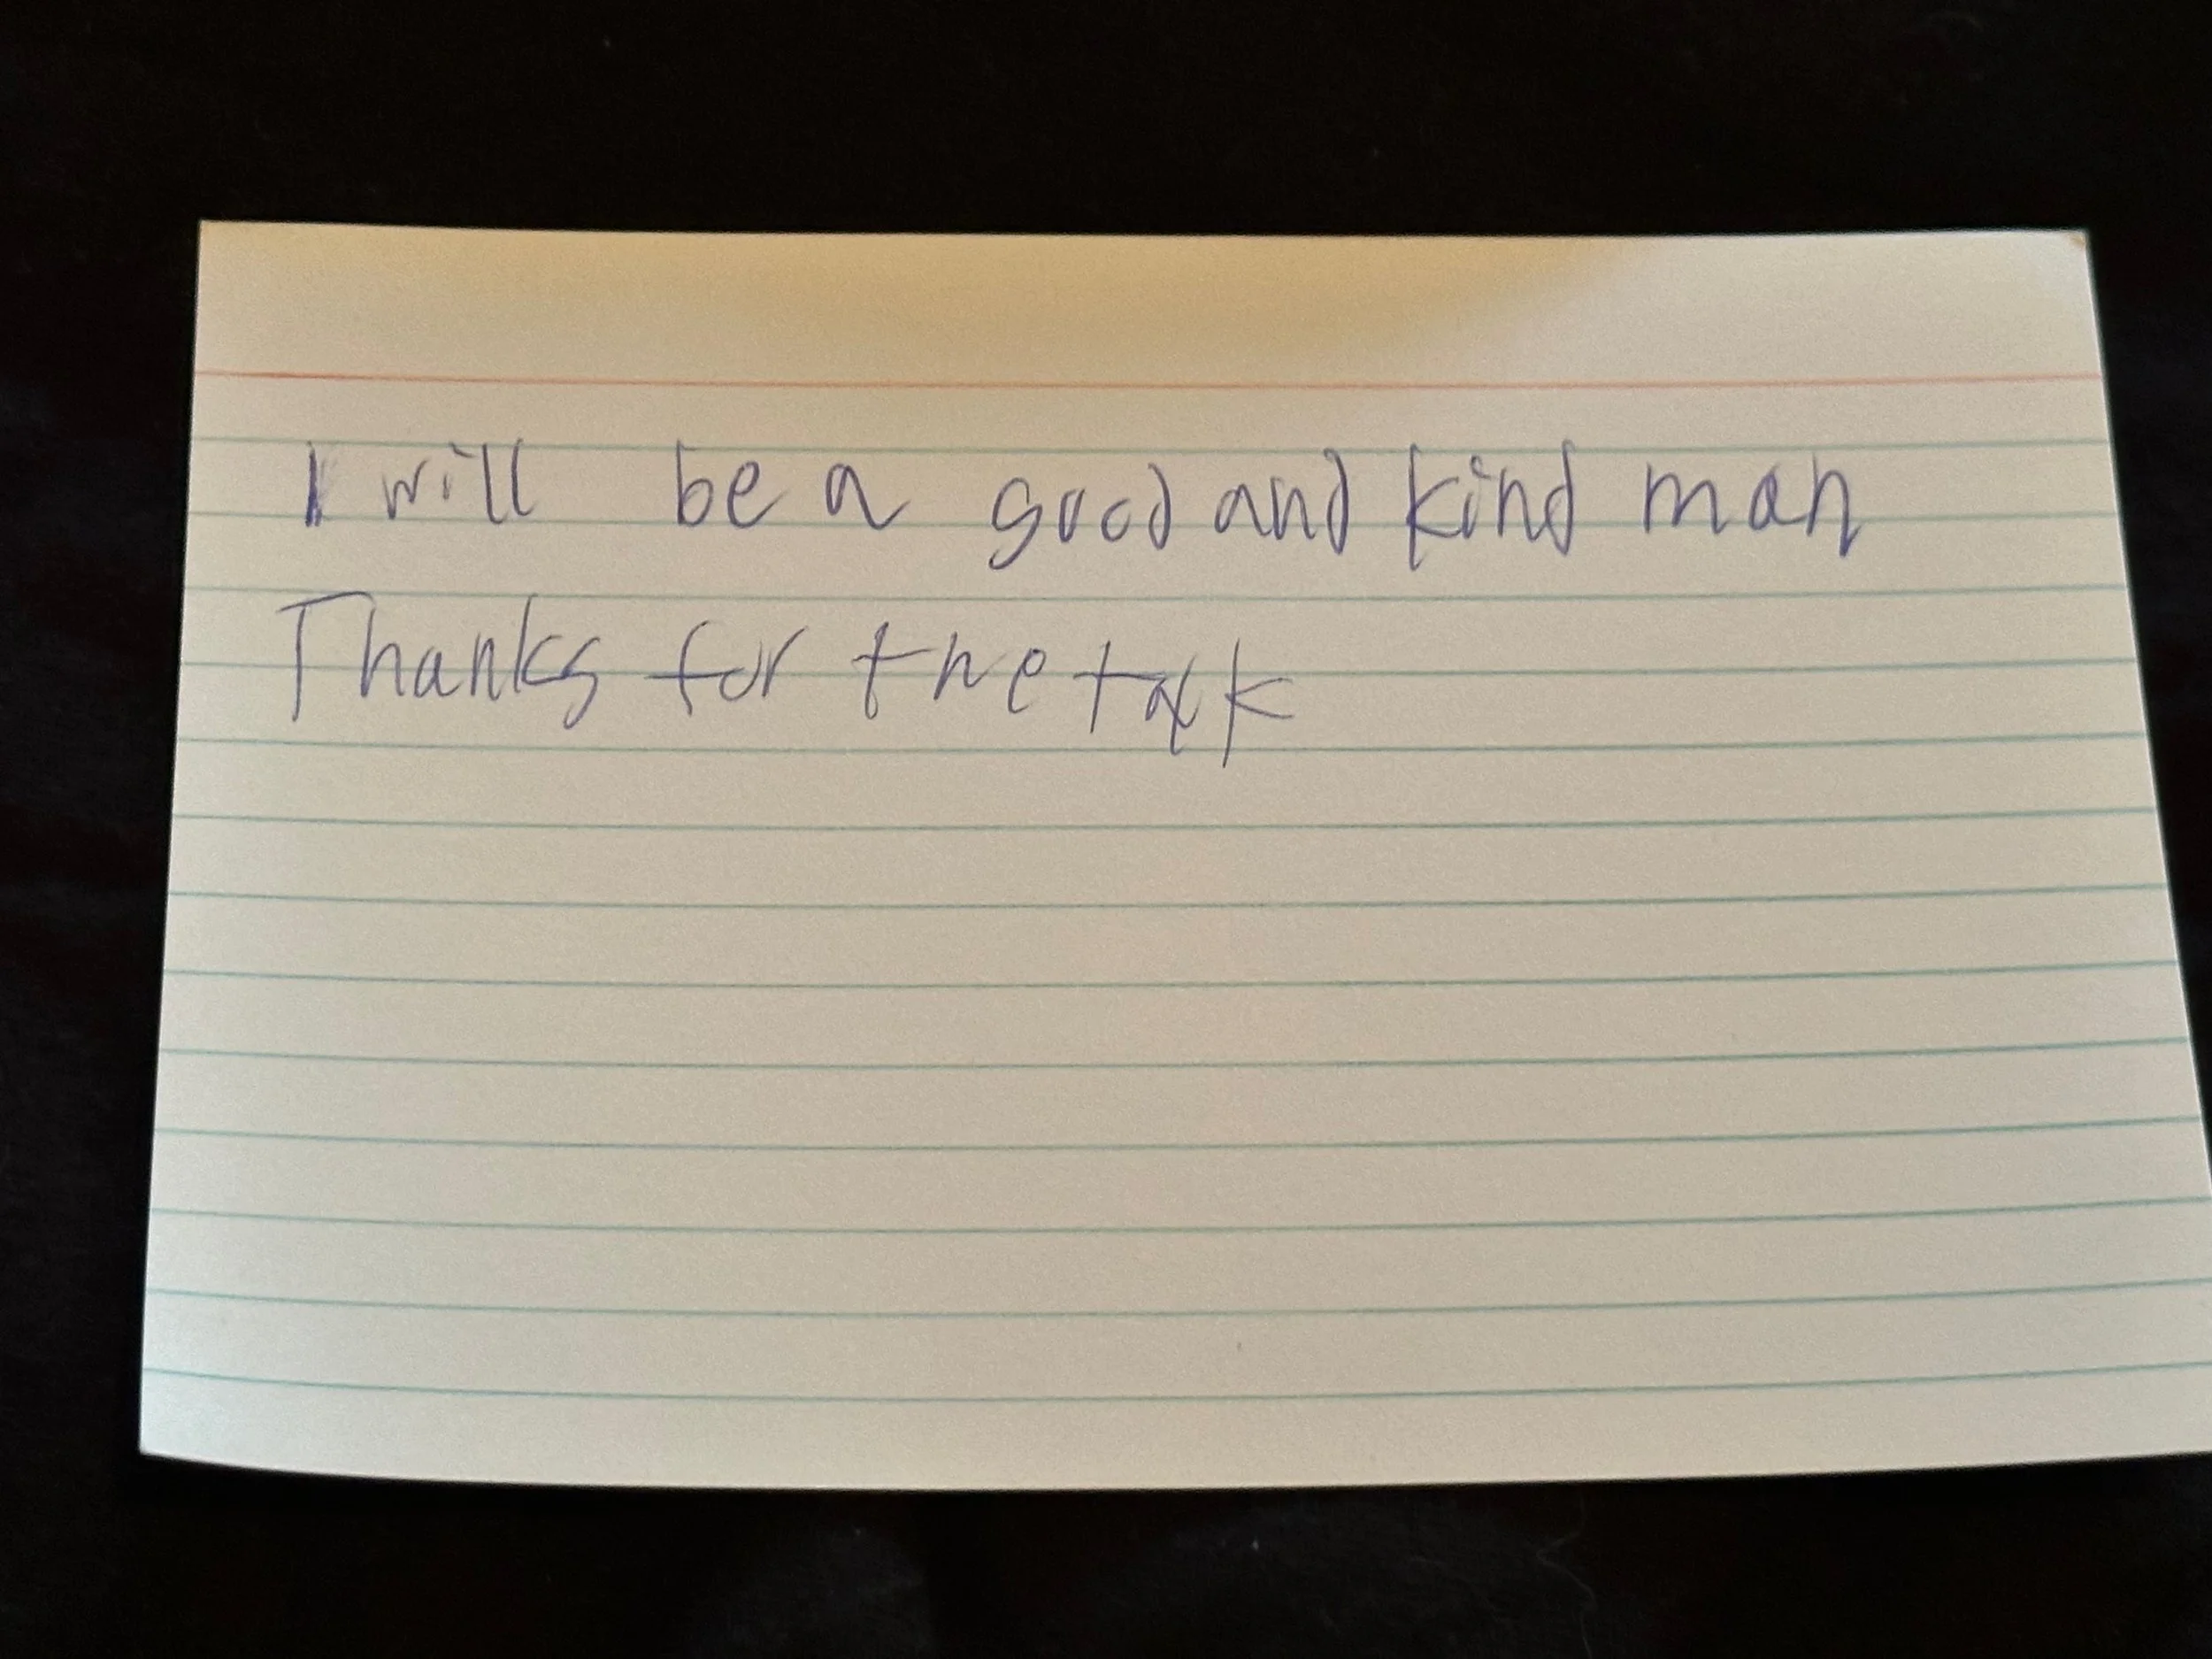 I will be a good and kind man
Thanks for the talk